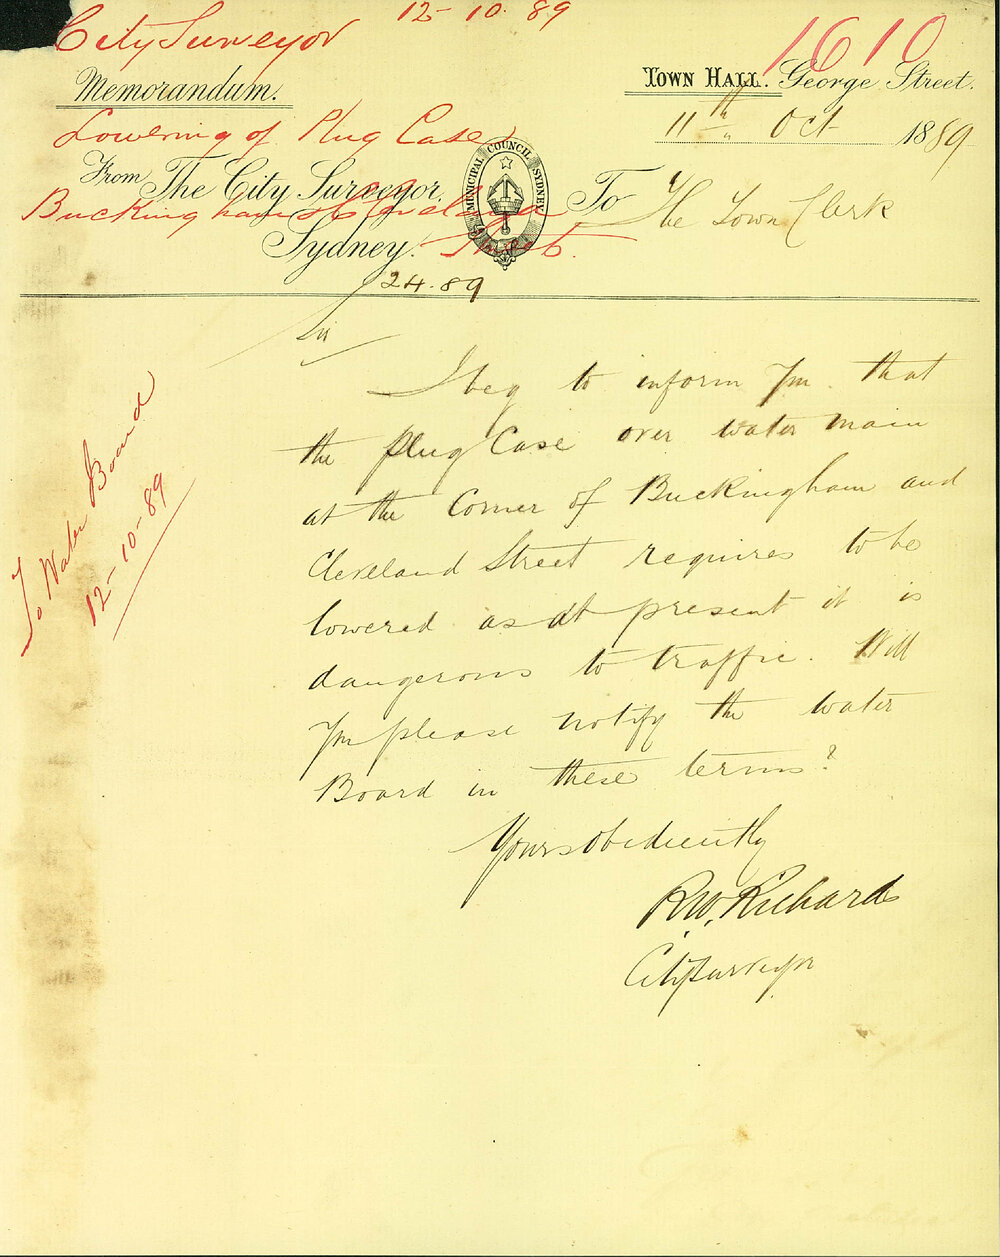 12-10-89
City Surveyor
1610
Memorandum.
Town Hall. George Street.
Lowering of Plug Case
11th Oct 1889
From The City Surveyor,
MUNICIPAL COUNCIL SYDNEY
To The Town Clerk
Buckingham & Cleveland
Sydney.
Streets.
24.89
Sir
I beg to inform you that
the plug Case over water main
at the Corner of Buckingham and
Cleveland Street requires to be
lowered as at present it is
dangerous to traffic. Will
you please notify the water
Board in these terms?
Yours obediently
R.W. Richards
City Surveyor
To Water Board
12-10-89